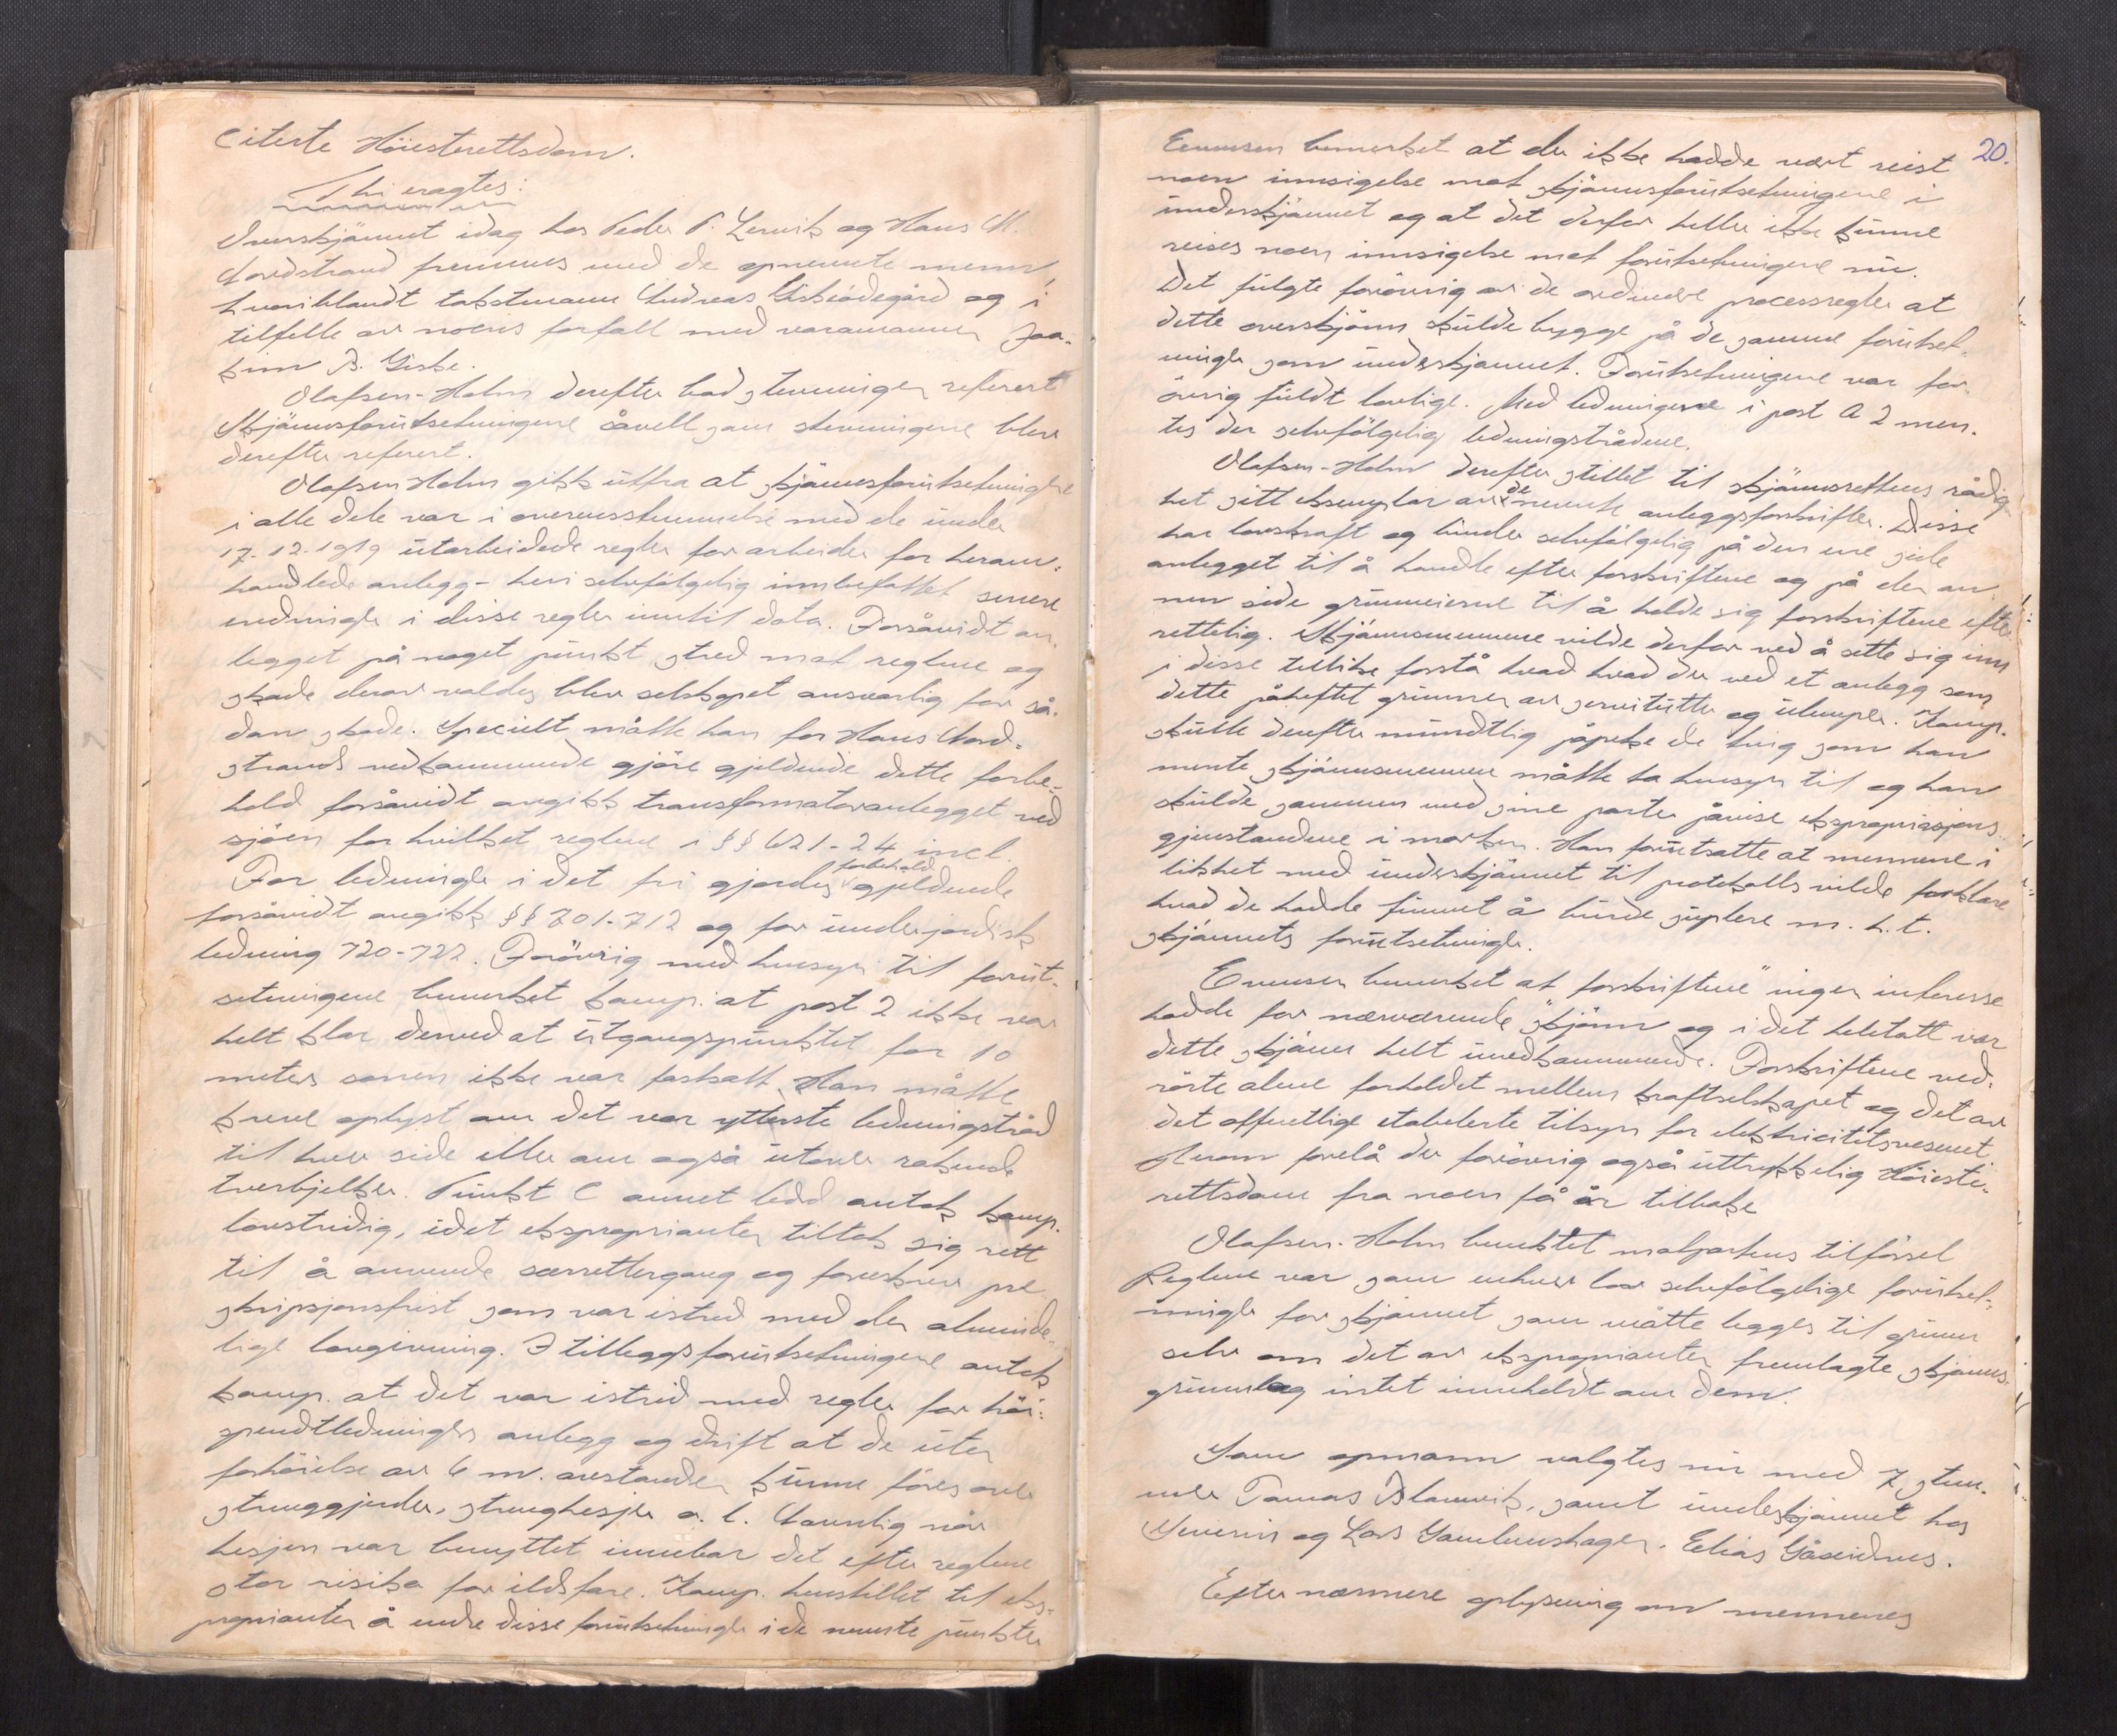 Citerte Höiesterettsdom.
Thi eragtes:
Overskjönnet idag hos Peder P. Lervik og Hans M.
Nordstrand fremmes med de opnevnte menn,
hvoriblandt takstmann Andreas Giskeödegård og i
tilfelle av noens forfall med varamannen Joa-
kim B. Giske.
Olafsen-Holm derefter bad stevningen referert
Skjönnsforutsetningene såvell som stevningene blev
derefter referert.
Olafsen Holm gikk utfra at skjönnsforutsetningene
i alle dele var i overensstemmelse med de under
17.12.1919 utarbeidede regler for arbeider for heram-
handlede anlegg - heri selvfölgelig innbefattet senere
endringer i disse regler inntil dato. Forsåvidt an-
legget på noget punkt stred mot reglene og
skade derav voldes blev selskapet ansvarlig for så-
dan skade. Specielt måtte han for Hans Nord-
strands vedkommende gjöre gjeldende dette forbe-
hold forsåvidt angikk transformatoranlegget ved
sjöen for hvilket reglene i §§ 621-24 incl.
For ledninger i det fri gjordes forbehold gjeldende
forsåvidt angikk §§ 701-712 og for underjordisk
ledning 720-722. Forövrig med hensyn til forut-
setningene bemerket komp. at post 2 ikke var
helt klar derved at utgangspunktet for 10
meters sonen ikke var fastsatt. Han måtte
kreve oplyst om det var ytterste ledningstråd
til hver side eller om også utover rakende
tverbjelker. Punkt C annet ledd antok komp.
lovstridig, idet ekspropianten tiltok sig rett
til å anvende særrettergang og foreskrev pre-
skripsjonsfrist som var istrid med den alminde-
lige lovgivning. I tilleggsforutsetningene antok
komp. at det var istrid med regler for höi-
spendtledningers anlegg og drift at de uten
forhöielse av 6 m. avstanden kunne föres over
strenggjerder, strenghesjer o. l. Navnlig når
hesjen var benyttet innebar det efter reglene
stor risiko for ildsfare. Komp. henstillet til eks-
proprianten å endre disse forutsetninger i de nevnte punkter
20.
Ennusen bemerket at der ikke hadde vært reist
noen innsigelse mot skjönnsforutsetningene i
underskjönnet og at det derfor heller ikke kunne
reises noen innsigelse mot forutsetningene nu.
Det fulgte forövrig av de ordinære processregler at
dette overskjönn skulde bygge på de samme forutset-
ninger som underskjönnet. Forutsetningene var for-
övrig fuldt lovlige. Med ledningene i post A 2 men-
tes der selvfölgelig ledningstrådene.
Olafsen-Holm derefter stillet til skjönnsrettens rådig-
het sitt eksemplar av de nevnte anleggsforskrifter. Disse
har lovskraft og binder selvfölgelig på den ene side
anlegget til å handle efter forskriftene og på den an-
nen side grunneierne til å holde sig forskriftene efter-
rettelig. Skjönnsmennene vilde derfor ved å sette sig inn
i disse tillike forstå hvad hvad der ved et anlegg som
dette påheftet grunnen av servitutter og ulemper. Komp.
skulle derefter mundtlig påpeke de ting som han
mente skjönnsmennene måtte ta hensyn til og han
skulde sammen med sine parter påvise ekspropriasjons-
gjenstandene i marken. Han forutsatte at mennene i
likhet med underskjönnet til protokolls vilde forklare
hvad de hadde funnet å burde suplere m. h. t.
skjönnets forutsetninger.
Ennusen bemerket at "forskriftene" ingen interesse
hadde for nærværende skjönn og i det heletatt var
dette skjönn helt uvedkommende. Forskriftene ved-
rörte alene forholdet mellem kraftselskapet og det av
det offentlige etablerte tilsyn for elektricitetsvesenet
Herom forelå der forövrig også uttrykkelig Höieste-
rettsdom fra noen få år tilbake
Olafsen-Holm benektet motpartens tilförsel
Reglene var som enhver lov selvfölgelige forutset-
ninger for skjönnet som måtte legges til grunn
selv om det av ekspropianten fremlagte skjönns-
grunnlag intet inneholdt om dem.
Som opmann valgtes nu med 7 stem-
mer Tomas Blomvik, samt underskjönnet hos
Severin og Lars Samlemshagen. Elias Gåseidnes.
Efter nærmere oplysning om mennenes